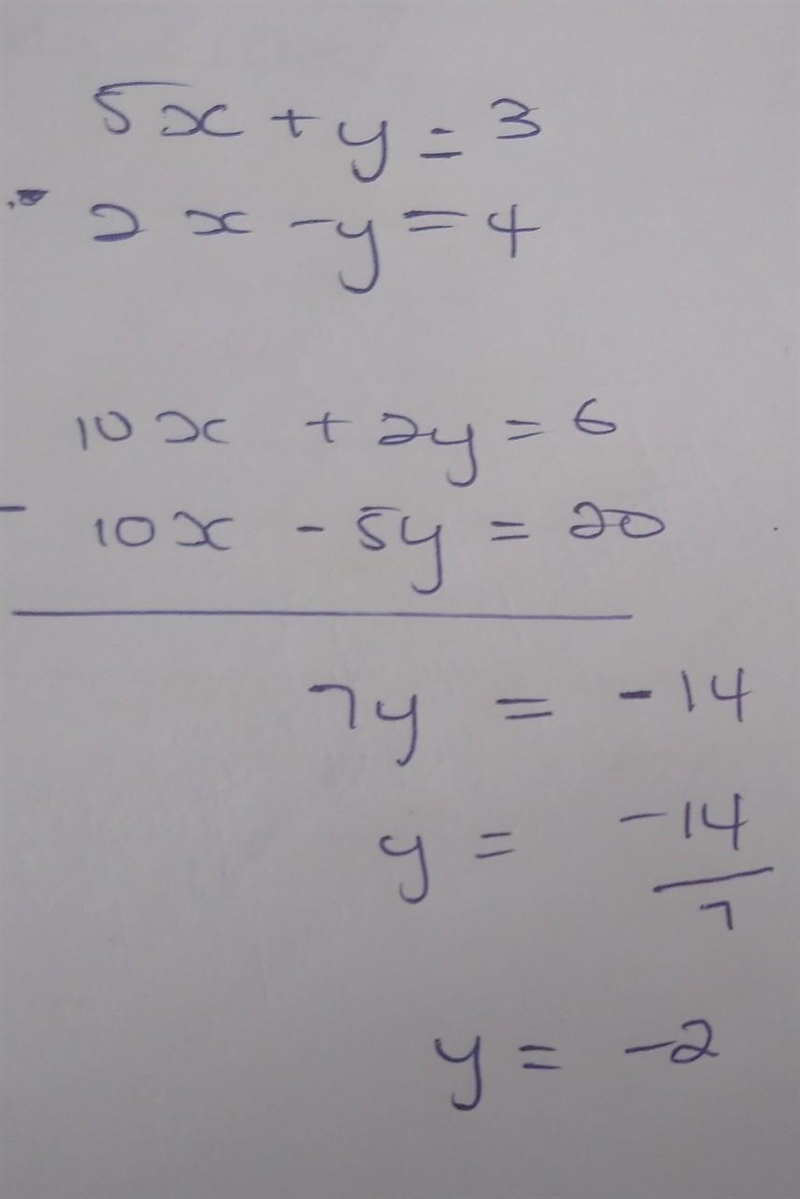 5x + y = 3
2x - y = 4
10x + 2y = 6
- 10x - 5y = 20
7y = -14
y = -14/7
y = -2